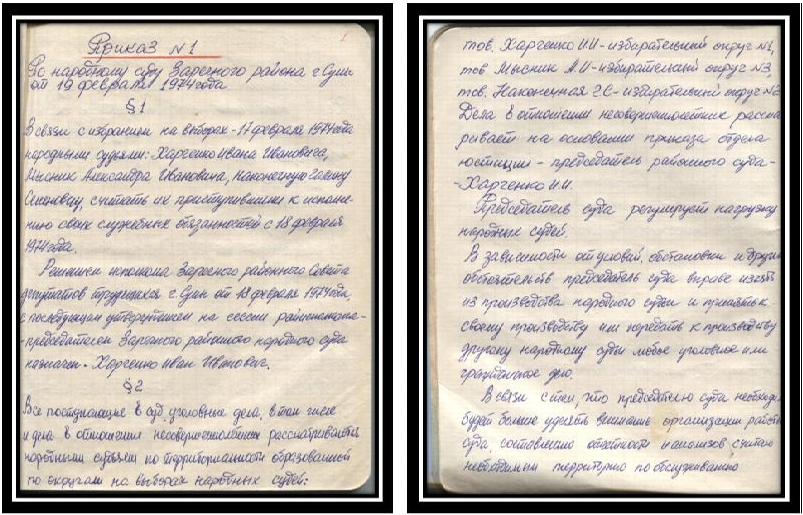 Приказ № 1
По народному суду Заречного района г. Сумы
от 19 февраля 1974 года
§ 1
В связи с избранием на выборах - 17 февраля 1974 года
народными судьями: Харченко Ивана Ивановича,
Мысник Александра Ивановича, Наконечную Галину
Семеновну, считать их приступившими к исполне-
нию своих служебных обязанностей с 18 февраля
1974 года.
Решением исполкома Заречного районного Совета
депутатов трудящихся г. Сумы от 18 февраля 1974 года,
с последующим утверждением на сессии райисполкома -
- председателем Заречного районного народного суда
назначен - Харченко Иван Иванович.
§ 2
Все поступающие в суд уголовные дела, в том числе
и дела в отношении несовершеннолетних рассматриваются
народными судьями по территориальности образованной
по округам на выборах народных судей:
тов. Харченко И.И - избирательный округ №1,
тов Мысник А.И - избирательный округ №3,
тов. Наконечная Г.С - избирательный округ №2
Дела в отношении несовершеннолетних рассма
ривает на основании приказа отдела
юстиции - председатель районного суда -
- Харченко И.И.
Председатель суда регулирует нагрузку
народных судей.
В зависимости от условий, обстановки и других
обстоятельств председатель суда вправе изъять
из производства народного судьи и принять к
своему производству или передать к производству
другому народному судье любое уголовное или
гражданское дело.
В связи с тем, что председателю суда необходи
будет больше уделять внимания организации работы
суда, составлению отчетности и анализов, считаю
необходимым территорию по обслуживанию